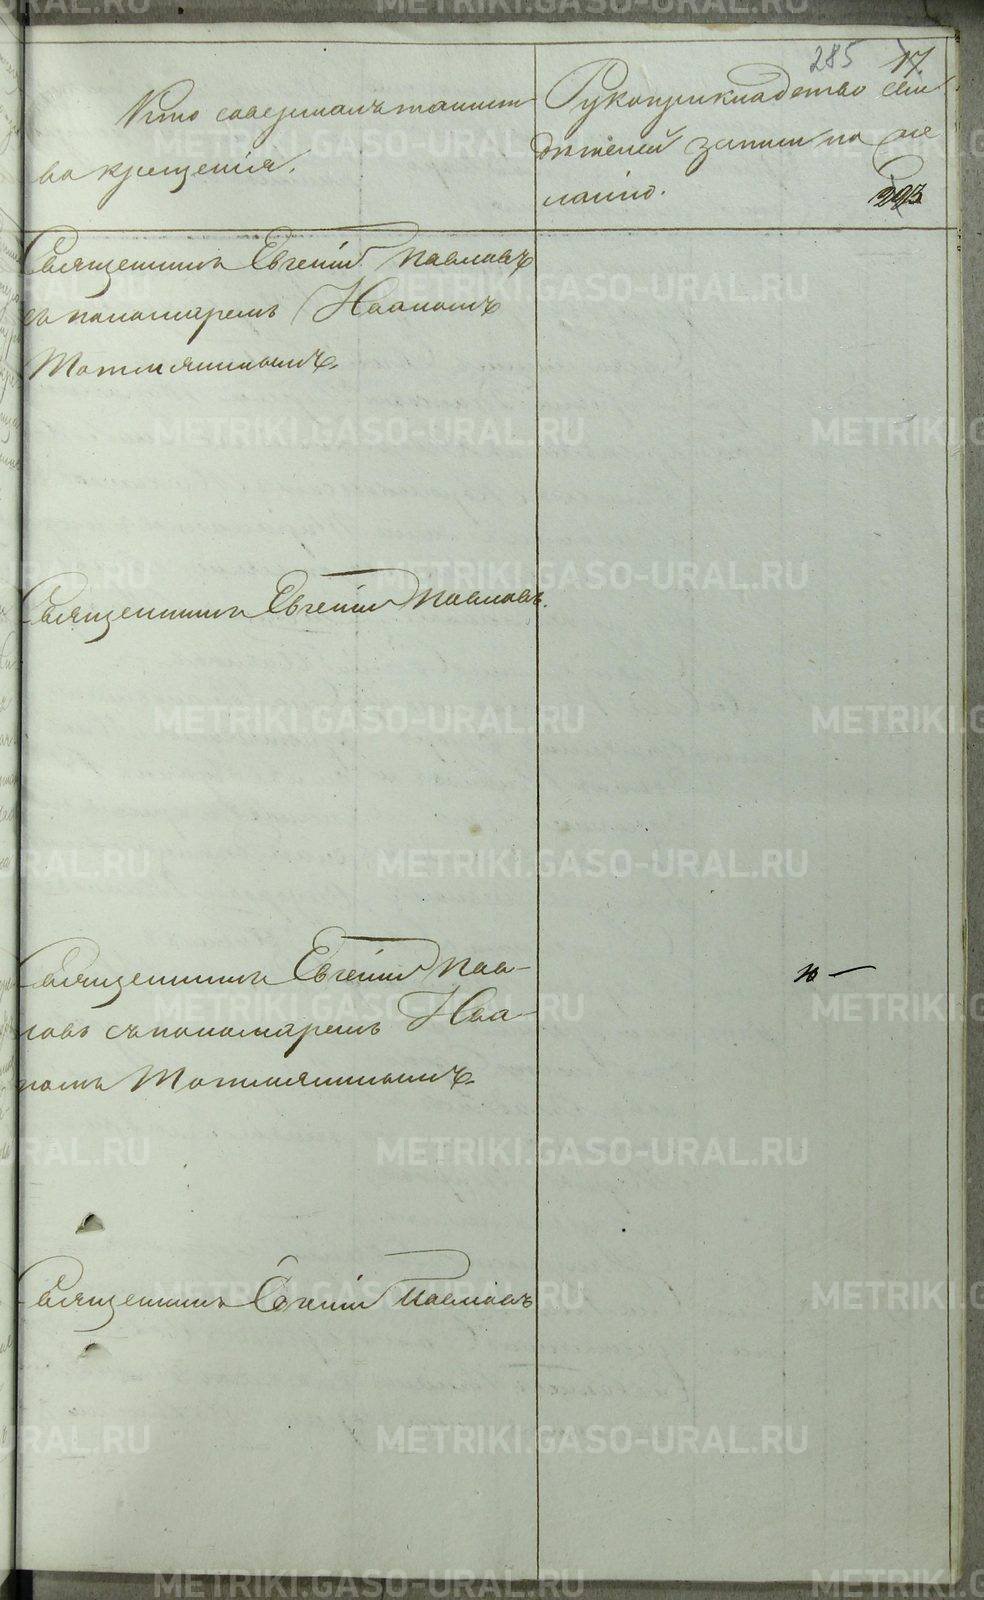 285 17.
Кто совершалъ таинст
во крещенія.
Рукоприкладство сви
дѣтелей записи по же
ланію.
293
Священникъ Евгеній Павловъ
съ пономаремъ Иваномъ
Тотмянинымъ.
Священникъ Евгеній Павловъ.
Священникъ Евгеній Пав-
ловъ съ пономаремъ Ива-
номъ Тотмянинымъ.
Священникъ Евгеній Павловъ
METRIKI.GASO-URAL.RU